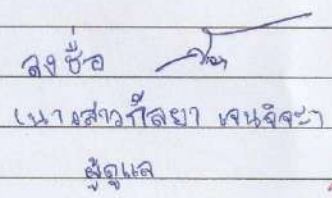 ลงชื่อ
(นางสาวกัลยา เจนจิจะ)
ผู้ดูแล